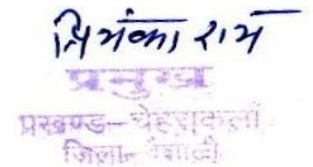 प्रियंका राय
प्रमुख
प्रखण्ड– चेहराकलाँ
जिला– वैशाली